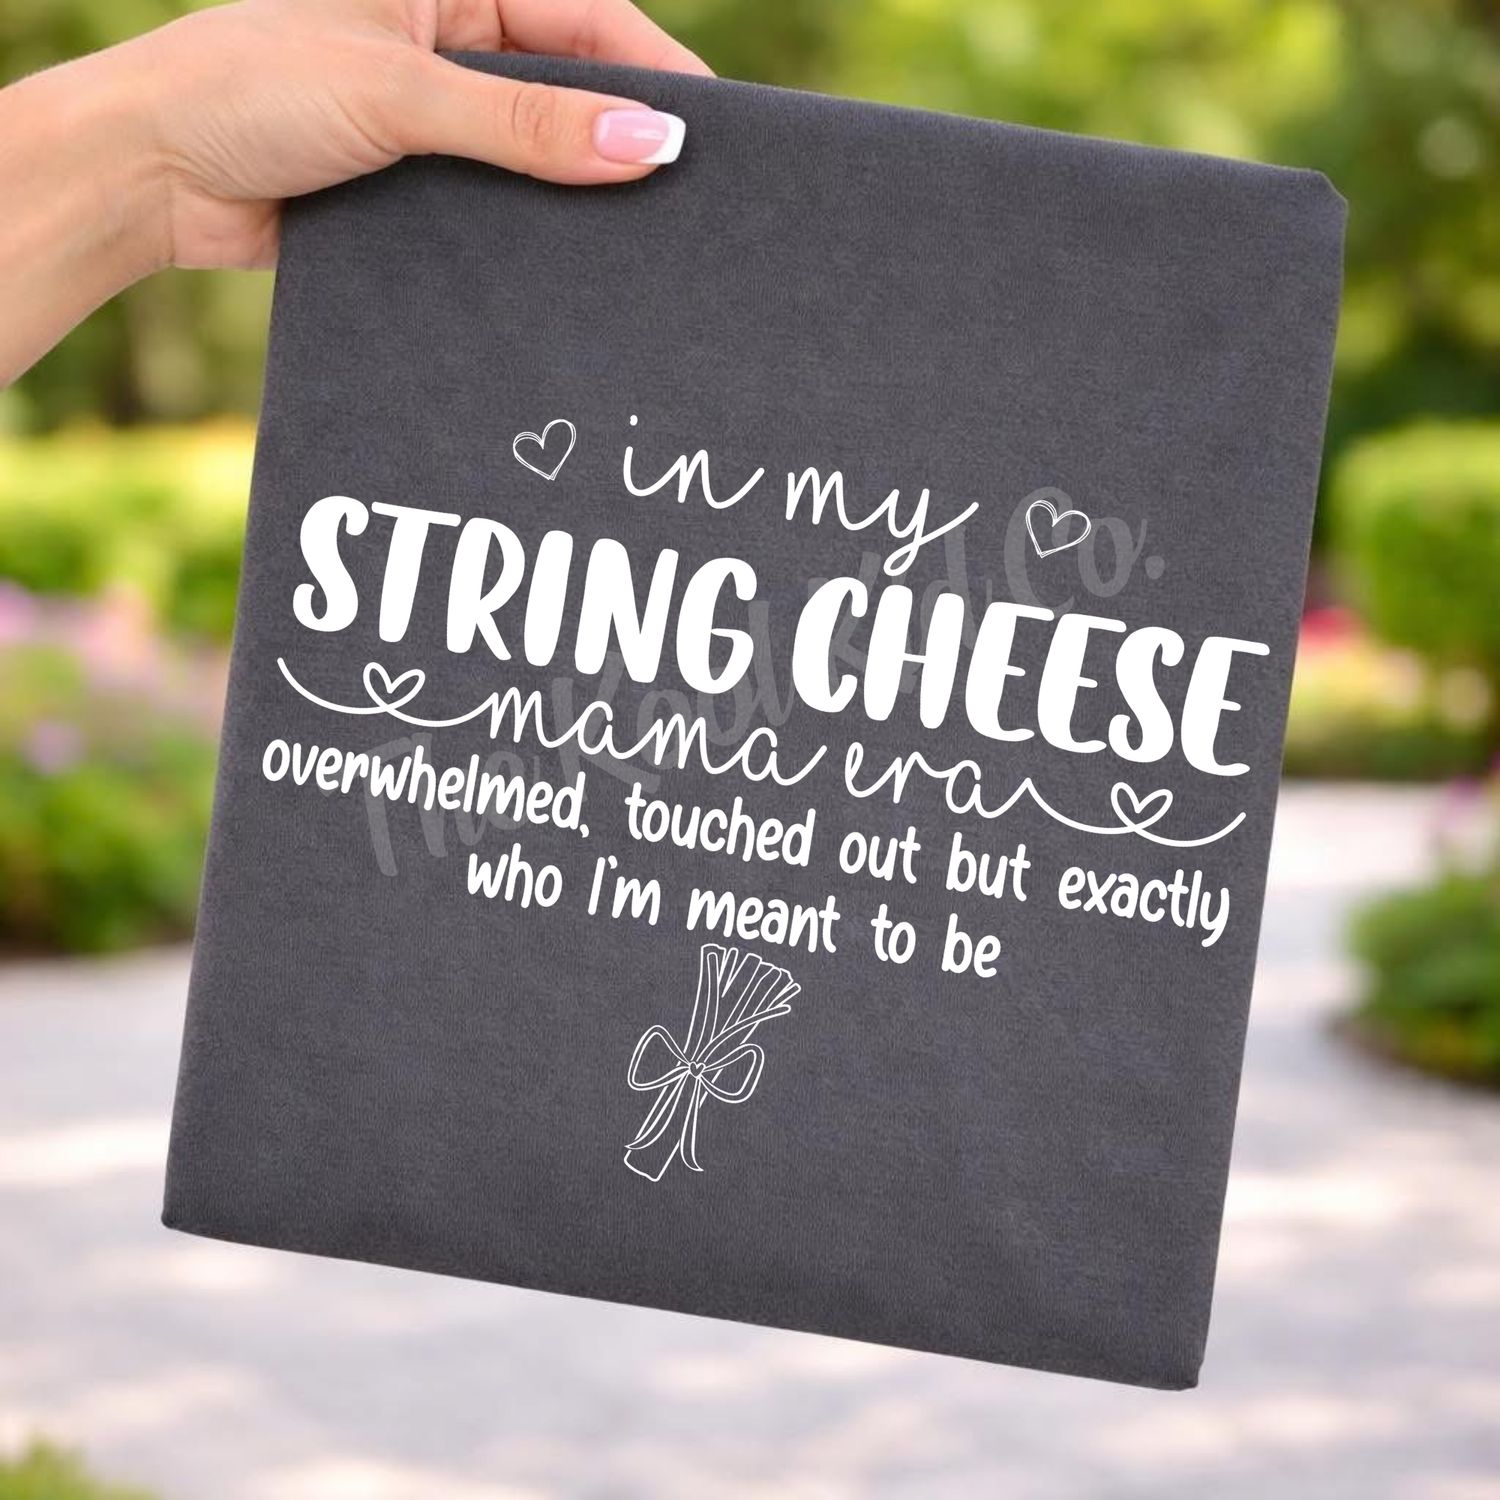 in my
STRING CHEESE
mama era
overwhelmed, touched out but exactly
who I'm meant to be
The Kool Kid Co.